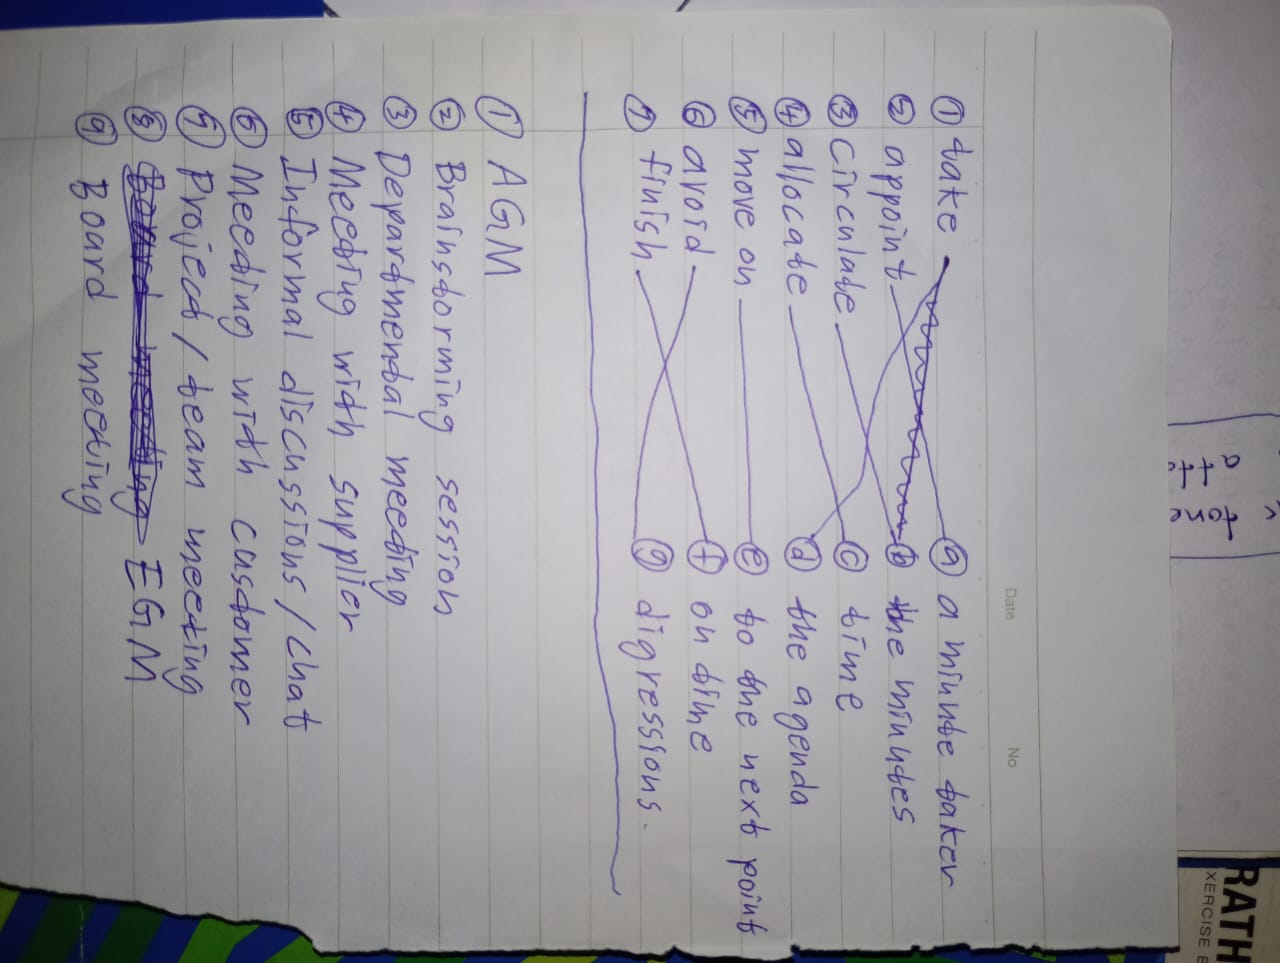 Date No
① take ⓐ a minute taker
② appoint ⓑ the minutes
③ circulate ⓒ time
④ allocate ⓓ the agenda
⑤ move on ⓔ to the next point
⑥ avoid ⓕ on time
⑦ finish ⓖ digressions.
① AGM
② Brainstorming session
③ Departmental meeting
④ Meeting with supplier
⑤ Informal discussions / chat
⑥ Meeting with customer
⑦ Project / team meeting
⑧ EGM
⑨ Board meeting
RATH
XERCISE